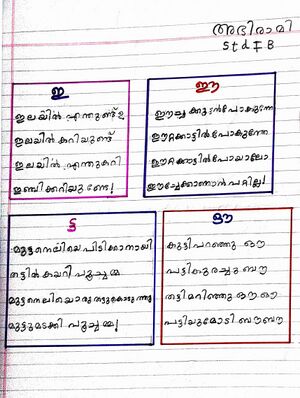 അഭിരാമി
Std I B
ഇ
ഇലയിൽ എന്തുണ്ട്
ഇലയിൽ കറിയുണ്ട്
ഇലയിൽ എന്തുകറി
ഇഞ്ചിക്കറിയുണ്ടേ!
ഈ
ഈച്ച
ഈറ്റക്കാട്ടിൽപോകുന്നേ
ഈറ്റക്കാട്ടിൽപോയാലോ
ഈച്ചെക്കാണാൻ പറ്റില്ല!
ട്ട
മുട്ടനെലിയെ പിടിക്കാനായി
തട്ടിൽ കയറി പൂച്ചമ്മ
മുട്ടനെലിയൊരു തട്ടുകൊടുത്തു
മുട്ടുമടക്കി പൂച്ചമ്മ!
ഔ
കുട്ടി പറഞ്ഞു ഔ
പട്ടി കുരച്ചു ബൗ
തട്ടി മറിഞ്ഞു ഔ ഔ
പട്ടിയുമോടി ബൗബൗ